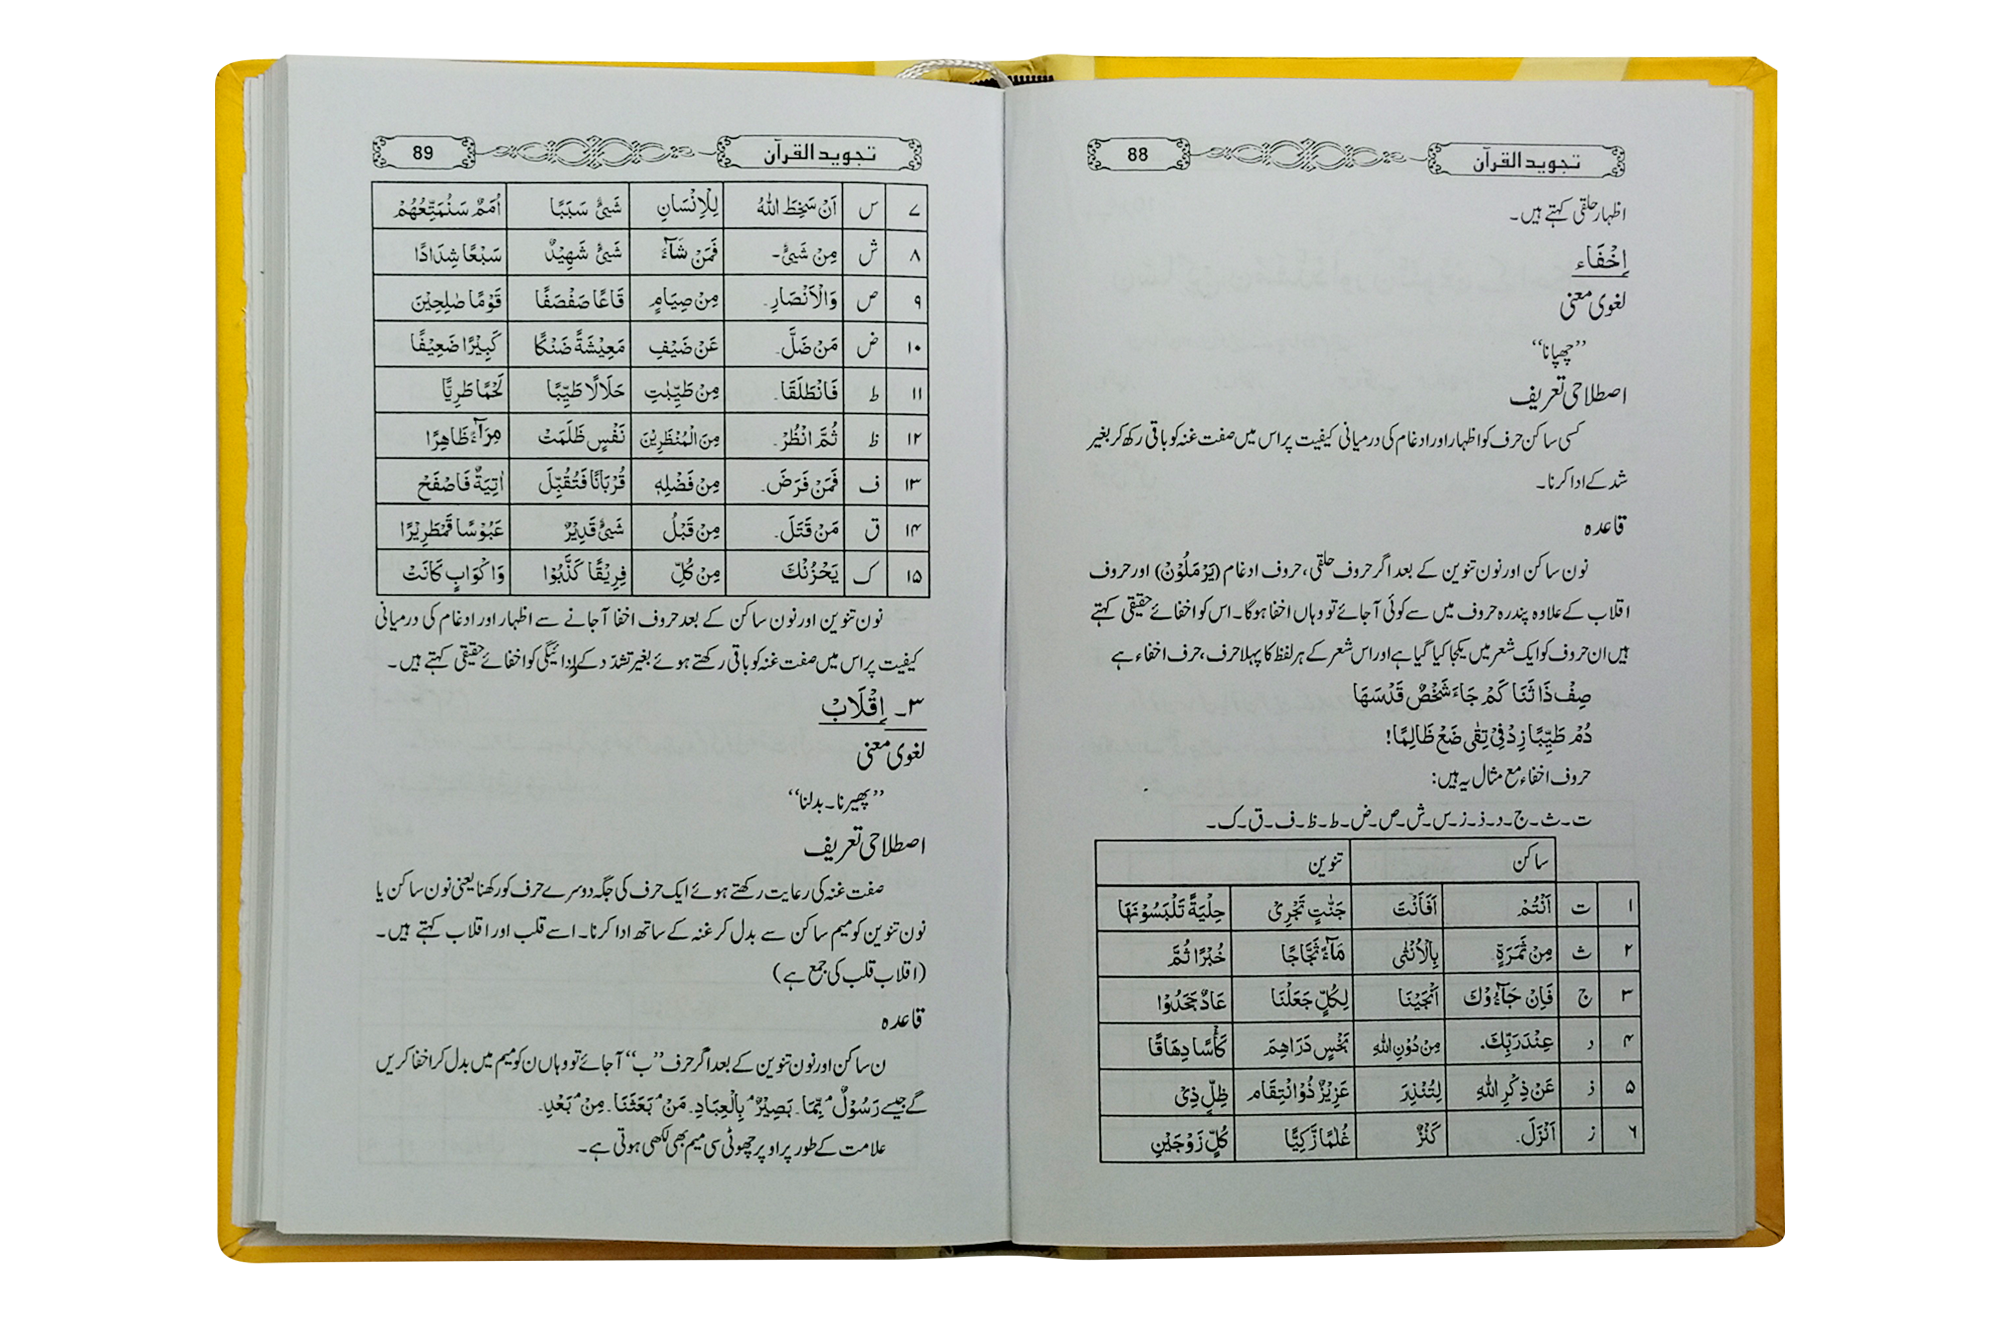 تجويد القرآن 88
اظہار حلقی کہتے ہیں۔
اِخْفَاء
لغوی معنی
”چھپانا“
اصطلاحی تعریف
کسی ساکن حرف کو اظہار اور ادغام کی درمیانی کیفیت پر اس میں صفت غنہ کو باقی رکھ کر بغیر
شد کے ادا کرنا۔
قاعدہ
نون ساکن اور نون تنوین کے بعد اگر حروف حلقی، حروف ادغام (يَرْمَلُوْنَ) اور حروف
اقلاب کے علاوہ پندرہ حروف میں سے کوئی آجائے تو وہاں اخفا ہوگا۔ اس کو اخفائے حقیقی کہتے
ہیں ان حروف کو ایک شعر میں یکجا کیا گیا ہے اور اس شعر کے ہر لفظ کا پہلا حرف، حرف اخفاء ہے
صِفْ ذَا ثَنَا كَمْ جَاءَ شَخْصٌ قَدْ سَهَا
دُمْ طَيِّبًا زِدْ فِيْ تِقٰى ضَعْ ظَالِمًا!
حروف اخفاء مع مثال یہ ہیں:
ت۔ث۔ج۔د۔ذ۔ز۔س۔ش۔ص۔ض۔ط۔ظ۔ف۔ق۔ک۔
ساکن تنوین
۱ ت اَنْتُمْ اَفَاَنْتَ جَنّٰتٍ تَجْرِيْ حِلْيَةً تَلْبَسُوْنَهَا
۲ ث مِنْ ثَمَرَةٍ۔ بِالْاُنْثٰى مَآءً ثَجَّاجًا خُبْرًا ثُمَّ
۳ ج فَاِنْ جَآءُوْكَ اَنْجَيْنَا لِكُلٍّ جَعَلْنَا عَادٌ جَحَدُوْا
۴ د عِنْدَ رَبِّكَ۔ مِنْ دُوْنِ اللّٰهِ بَخْسٍ دَرَاهِمَ كَأْسًا دِهَاقًا
۵ ذ عَنْ ذِكْرِ اللّٰهِ لِتُنْذِرَ عَزِيْزٌ ذُو انْتِقَام ظِلٍّ ذِيْ
۶ ز اَنْزَلَ۔ كَنْزٌ غُلٰمًا زَكِيًّا كُلٍّ زَوْجَيْنِ
تجويد القرآن 89
۷ س اَنْ سَخِطَ اللّٰهُ لِلْاِنْسَانِ شَيْءٍ سَبَبًا اُمَمٌ سَنُمَتِّعُهُمْ
۸ ش مِنْ شَيْءٍ۔ فَمَنْ شَآءَ شَيْءٍ شَهِيْدٌ سَبْعًا شِدَادًا
۹ ص وَالْاَنْصَارِ۔ مِنْ صِيَامٍ قَاعًا صَفْصَفًا قَوْمًا صٰلِحِيْنَ
۱۰ ض مَنْ ضَلَّ۔ عَنْ ضَيْفِ مَعِيْشَةً ضَنْكًا كَبِيْرًا ضَعِيْفًا
۱۱ ط فَانْطَلَقَا۔ مِنْ طَيِّبٰتِ حَلَالًا طَيِّبًا لَحْمًا طَرِيًّا
۱۲ ظ ثُمَّ انْظُرْ۔ مِنَ الْمُنْظَرِيْنَ نَفْسٍ ظَلَمَتْ مِرَآءً ظَاهِرًا
۱۳ ف فَمَنْ فَرَضَ۔ مِنْ فَضْلِهٖ قُرْبَانًا فَتُقُبِّلَ اٰتِيَةٌ فَاصْفَحْ
۱۴ ق مَنْ قَتَلَ۔ مِنْ قَبْلُ شَيْءٍ قَدِيْرٌ عَبُوْسًا قَمْطَرِيْرًا
۱۵ ک يَحْزُنْكَ مِنْ كُلِّ فَرِيْقًا كَذَّبُوْا وَاَكْوَابٍ كَانَتْ
نون تنوین اور نون ساکن کے بعد حروف اخفا آجانے سے اظہار اور ادغام کی درمیانی
کیفیت پر اس میں صفت غنہ کو باقی رکھتے ہوئے بغیر تشدّد کے ادائیگی کو اخفائے حقیقی کہتے ہیں۔
۳۔ اِقْلَابْ
لغوی معنی
”پھیرنا۔ بدلنا“
اصطلاحی تعریف
صفت غنہ کی رعایت رکھتے ہوئے ایک حرف کی جگہ دوسرے حرف کو رکھنا یعنی نون ساکن یا
نون تنوین کو میم ساکن سے بدل کر غنہ کے ساتھ ادا کرنا۔ اسے قلب اور اقلاب کہتے ہیں۔
(اقلاب قلب کی جمع ہے)
قاعدہ
ن ساکن اور نون تنوین کے بعد اگر حرف ”ب“ آجائے تو وہاں ن کو میم میں بدل کر اخفا کریں
گے جیسے رَسُوْلٌۢ بِمَا۔ بَصِيْرٌۢ بِالْعِبَادِ۔ مَنْۢ بَعَثَنَا۔ مِنْۢ بَعْدِ۔
علامت کے طور پر اوپر چھوٹی سی میم بھی لکھی ہوتی ہے۔